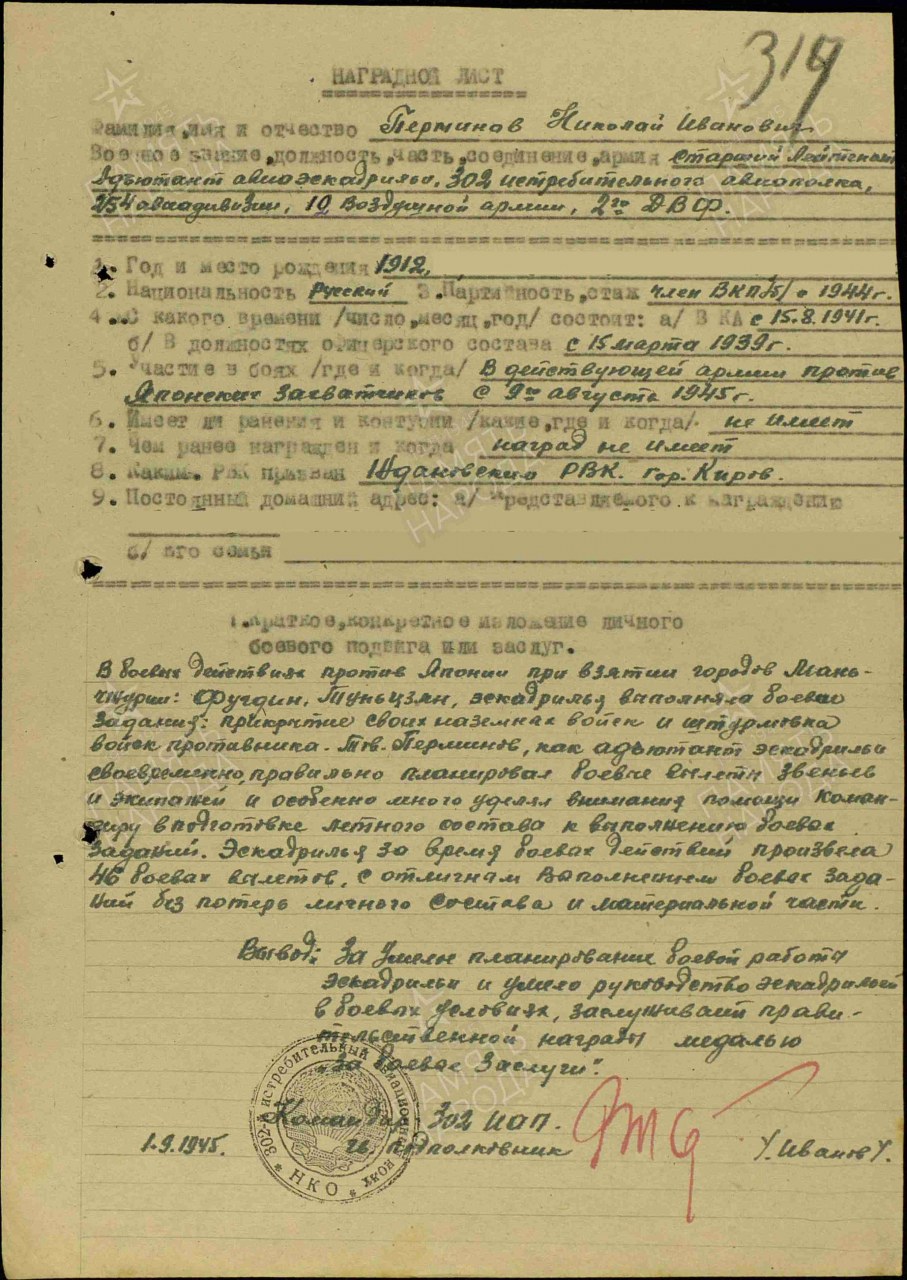 319
НАГРАДНОЙ ЛИСТ
Фамилия, имя и отчество Перминов Николай Иванович
Военное звание, должность, часть, соединение, армия старший лейтенант
Адъютант авиаэскадрильи, 302 истребительного авиаполка,
254 авиадивизии, 10 Воздушной армии, 2го ДВФ.
1. Год и место рождения 1912,
2. Национальность русский 3. Партийность, стаж член ВКП/б/ с 1944г.
4. С какого времени /число, месяц, год/ состоит: а/ В КА с 15.8.1941г.
б/ В должностях офицерского состава с 15 марта 1939г.
5. Участие в боях /где и когда/ В действующей армии против
Японских захватчиков с 9го августа 1945г.
6. Имеет ли ранения и контузии /какие, где и когда/ не имеет
7. Чем ранее награжден и когда наград не имеет
8. Каким РВК призван Ждановским РВК. гор. Киров.
9. Постоянный домашний адрес: а/ Представляемого к награждению
б/ его семьи
1. Краткое, конкретное изложение личного
боевого подвига или заслуг.
В боевых действиях против Японии при взятии городов Мань-
чжурии: Фугдин, Туньцзян, эскадрилья выполняла боевые
задания: прикрытие своих наземных войск и штурмовка
войск противника. Тов. Перминов, как адъютант эскадрильи
своевременно, правильно планировал боевые вылеты звеньев
и экипажей и особенно много уделял внимания помощи коман-
диру в подготовке летного состава к выполнению боевых
заданий. Эскадрилья за время боевых действий произвела
46 боевых вылетов, с отличным выполнением боевых зада-
ний без потерь личного состава и материальной части.
Вывод: За умелое планирование боевой работы
эскадрильи и умело руководство эскадрильей
в боевых условиях, заслуживает прави-
тельственной награды медалью
"За боевые заслуги".
Командир 302 ИАП.
1.9.1945. гв. подполковник /Иванов/.
302-й истребительный авиационный полк * НКО *
ПАМЯТЬ НАРОДА